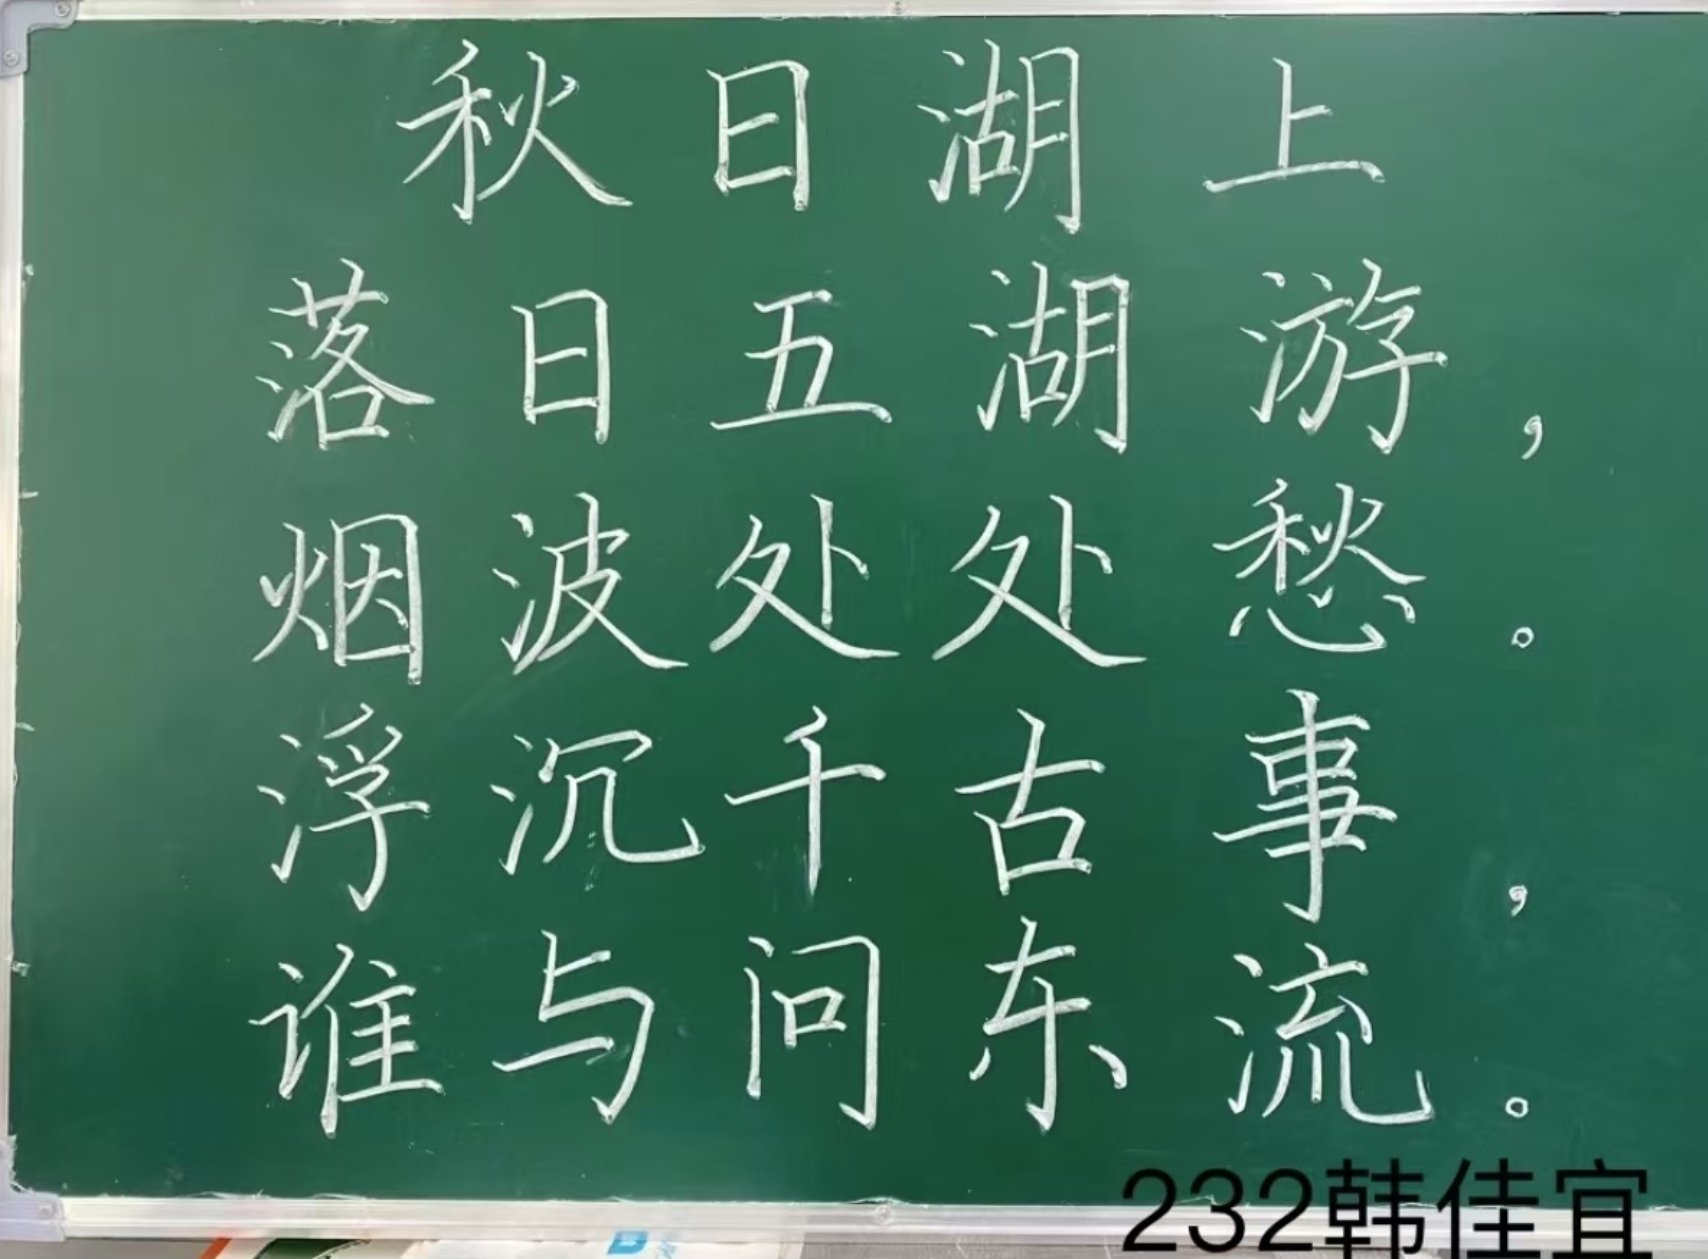 秋日湖上
落日五湖游，
烟波处处愁。
浮沉千古事，
谁与问东流。
232韩佳宜